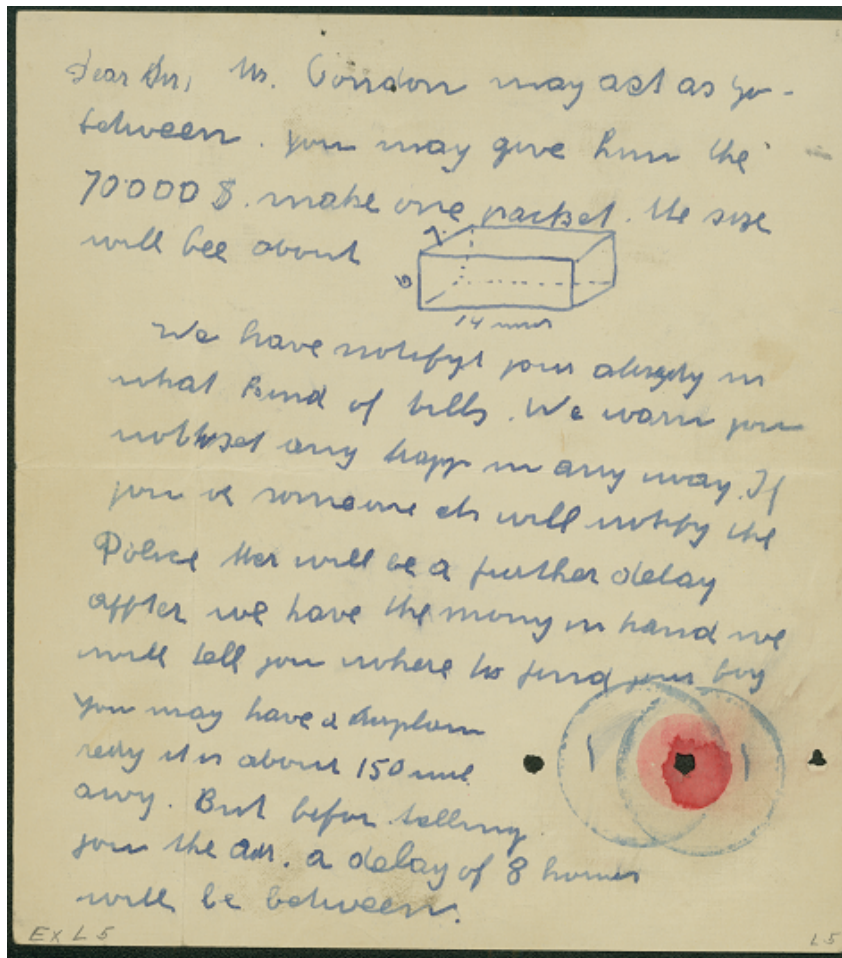 Dear Sir, Mr. Condon may act as go-
between. you may give him the
70000 $. make one packet. the size
will bee about
7
6
14 inch
We have notifyt you allredy in
what kind of bills. We warn you
not to set any trapp in any way. If
you or someone els will notify the
Police ther will be a further delay
affter we have the mony in hand we
will tell you where to find your boy
You may have a airplain
redy it is about 150 mil
awy. But befor telling
you the adr. a delay of 8 houers
will be between.
Ex L 5
L 5